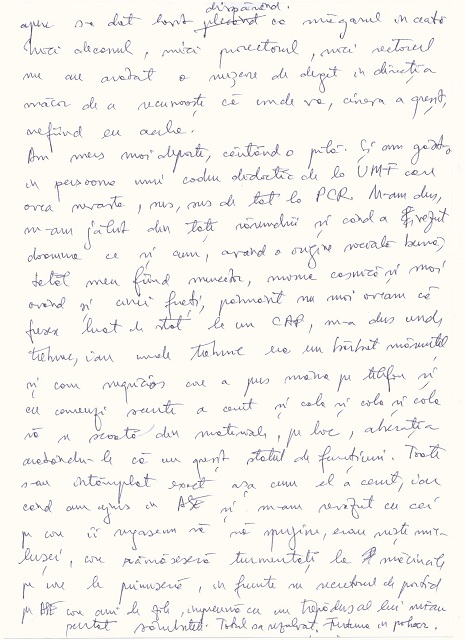 dispărând.
apoi s-a dat lovit ca măgarul în ceață
Nici decanul, nici prorectorul, nici rectorul
nu au arătat o nuzeze de deget în direcția
măcar de a recunoaște că unde va, cineva a greșit,
nefiind eu acela.
Am mers mai departe, căutând o pilă. Și am găsit,
în persoana unui cadru didactic de la UMF care
avea nevasta, sus, sus de tot la PCR. M-am dus,
m-am jăluit din toți rărunchii și când a văzut
doamna ce și cum, având o origine socială bună,
tatăl meu fiind muncitor, mama casnică și mai
având și cinci frați, pământ nu mai aveam că
fusese luat de stat la un CAP, m-a dus unde
trebuie, iar unde trebuie era un bărbat mărunțel
și cam negricios care a pus mâna pe telefon și
cu comenzi scurte a cerut și cola și cola și cola
să se scoată din materiale, pe loc, aberația
arătându-le că au greșit statul de funcțiuni. Toate
s-au întâmplat exact așa cum el a cerut, iar
când am ajuns în ASE și m-am revăzut cu cei
pe care îi rugasem să mă sprijine, erau niște
care rămăseseră turmentați la
pe care le primiseră, în frunte cu secretarul de partid
pe ASE care ani de zile, împreună cu un al lui m-au
purtat Totul s-a rezolvat. Furtuna în pahar.